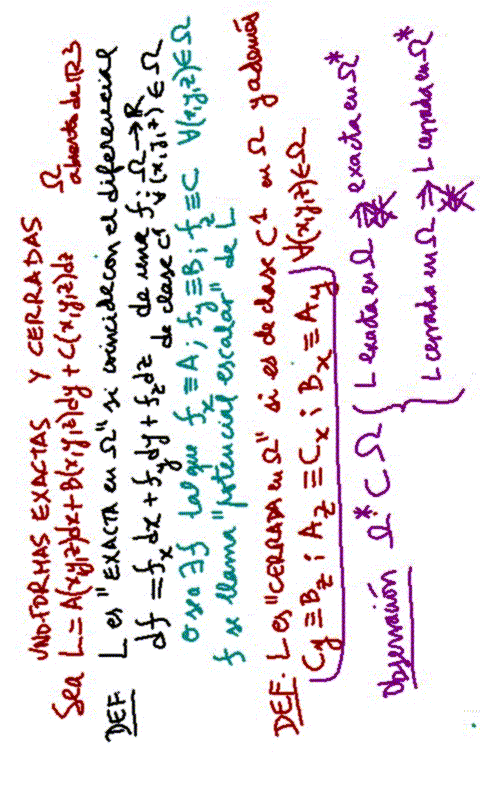 UNO-FORMAS EXACTAS Y CERRADAS
Sea L = A(x,y,z)dx + B(x,y,z)dy + C(x,y,z)dz Ω abierto de IR3
DEF L es "EXACTA en Ω" si coincide con el diferencial
df = f_x dx + f_y dy + f_z dz de una f: Ω → R
de clase C¹ ∀(x,y,z) ∈ Ω
o sea ∃f tal que f_x ≡ A ; f_y ≡ B ; f_z ≡ C ∀(x,y,z) ∈ Ω
f se llama "potencial escalar" de L
DEF. L es "CERRADA en Ω" si es de clase C¹ en Ω y además
C_y ≡ B_z ; A_z ≡ C_x ; B_x ≡ A_y ∀(x,y,z) ∈ Ω
Observación Ω* ⊂ Ω { L exacta en Ω ⇒ exacta en Ω*
L cerrada en Ω ⇒ L cerrada en Ω*